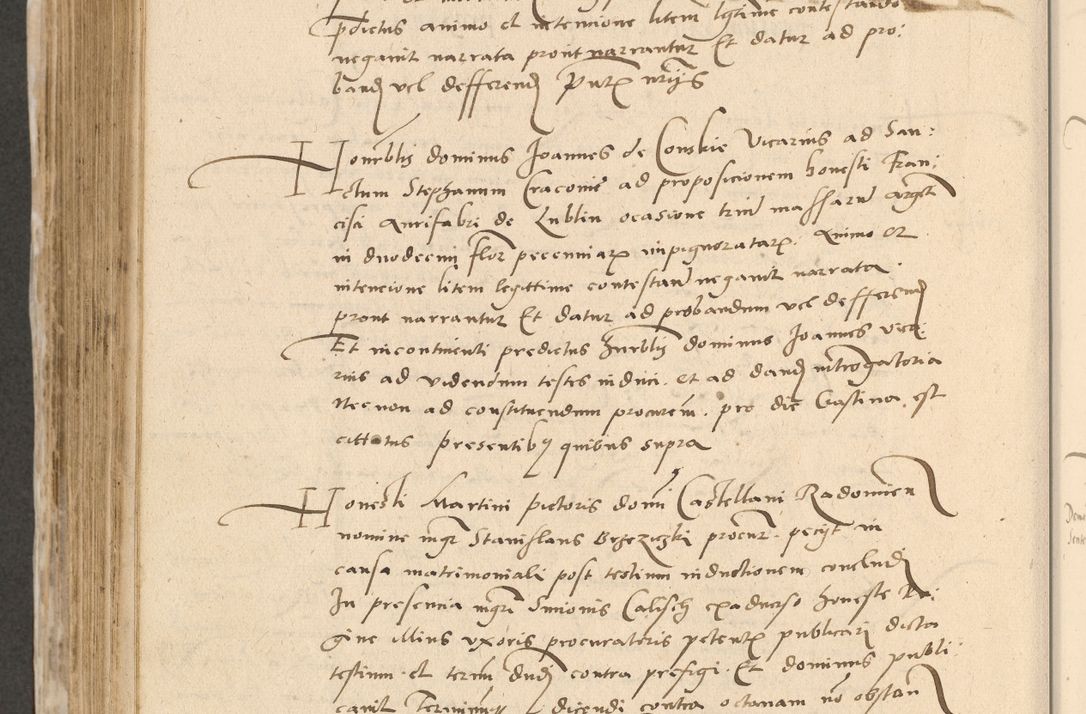 pdictus animo et intensione litem lgtime contestando
negavit narrata prout narrantur Et datur ad pro:
band vel defferend Putx
Honrblis dominus Joannes de Conskie Vicarius ad San:
ctum Stephanum Cracovie ad proposicionem honesti Fran:
cisi Aurifabri de Lublin ocasione triu massaru argeti
in duodecim flor peccuniarx inpignoratarx. Animo et
intencione litem legittime contestan negavit narrata.
prout narrantur Et datur ad probandum vel defferend
Et incontinenti predictus hnrblis dominus Joannes vica:
rius ad videndum testes induci. et ad dand introgatoria
Necnon ad constituendum procurem. pro die Crastina est
cittatus presentibus quibus supra
Honesti Martini pictoris domi Castellani Radomien
nomine mgr Stanislaus Brzeziczki procur. peciit in
causa matrimoniali post testium inductionem concludi
In presencia mgri Simonis Calisch exadverso honeste Re:
gine illius vxoris procuratoris petentx publicari dicta
testium et contra prefigi. Et dominus publi:
cavit Terminum dicendi contra octavam no obstan